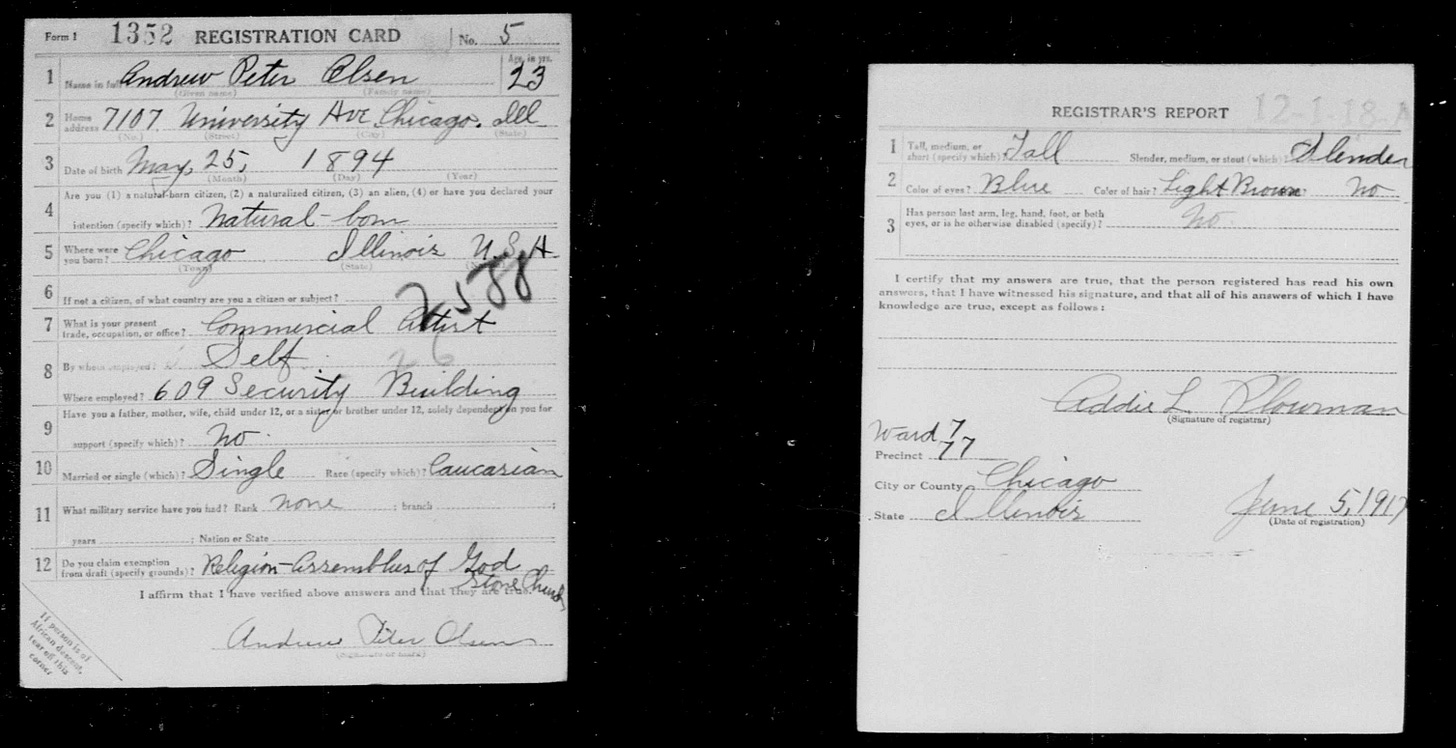 Form 1 1352 REGISTRATION CARD No. 5
1 Name in full Andrew Peter Olsen Age, in yrs. 23
(Given name) (Family name)
2 Home address 7107 University Ave Chicago. Ill
(No.) (Street) (City) (State)
3 Date of birth May, 25, 1894
(Month) (Day) (Year)
4 Are you (1) a natural-born citizen, (2) a naturalized citizen, (3) an alien, (4) or have you declared your
intention (specify which)? Natural-born
5 Where were you born? Chicago Illinois U.S.A.
(Town) (State)
2588
6 If not a citizen, of what country are you a citizen or subject?
7 What is your present trade, occupation, or office? Commercial Artist
8 By whom employed? Self 26
Where employed? 609 Security Building
9 Have you a father, mother, wife, child under 12, or a sister or brother under 12, solely dependent on you for
support (specify which)? No
10 Married or single (which)? Single Race (specify which)? Caucasian
11 What military service have you had? Rank none ; branch ;
years ; Nation or State
12 Do you claim exemption from draft (specify grounds)? Religion-Assemblies of God
Stone Church
I affirm that I have verified above answers and that they are true.
Andrew Peter Olsen
If person is of
African descent,
tear off this
corner
REGISTRAR'S REPORT 12-1-18-A
1 Tall, medium, or short (specify which)? Tall Slender, medium, or stout (which)? Slender
2 Color of eyes? Blue Color of hair? Light Brown ? No
3 Has person lost arm, leg, hand, foot, or both
eyes, or is he otherwise disabled (specify)? No
I certify that my answers are true, that the person registered has read his own
answers, that I have witnessed his signature, and that all of his answers of which I have
knowledge are true, except as follows:
Addie L. Plowman
(Signature of registrar)
Ward 7
Precinct 77
City or County Chicago
State Illinois
June 5, 1917
(Date of registration)